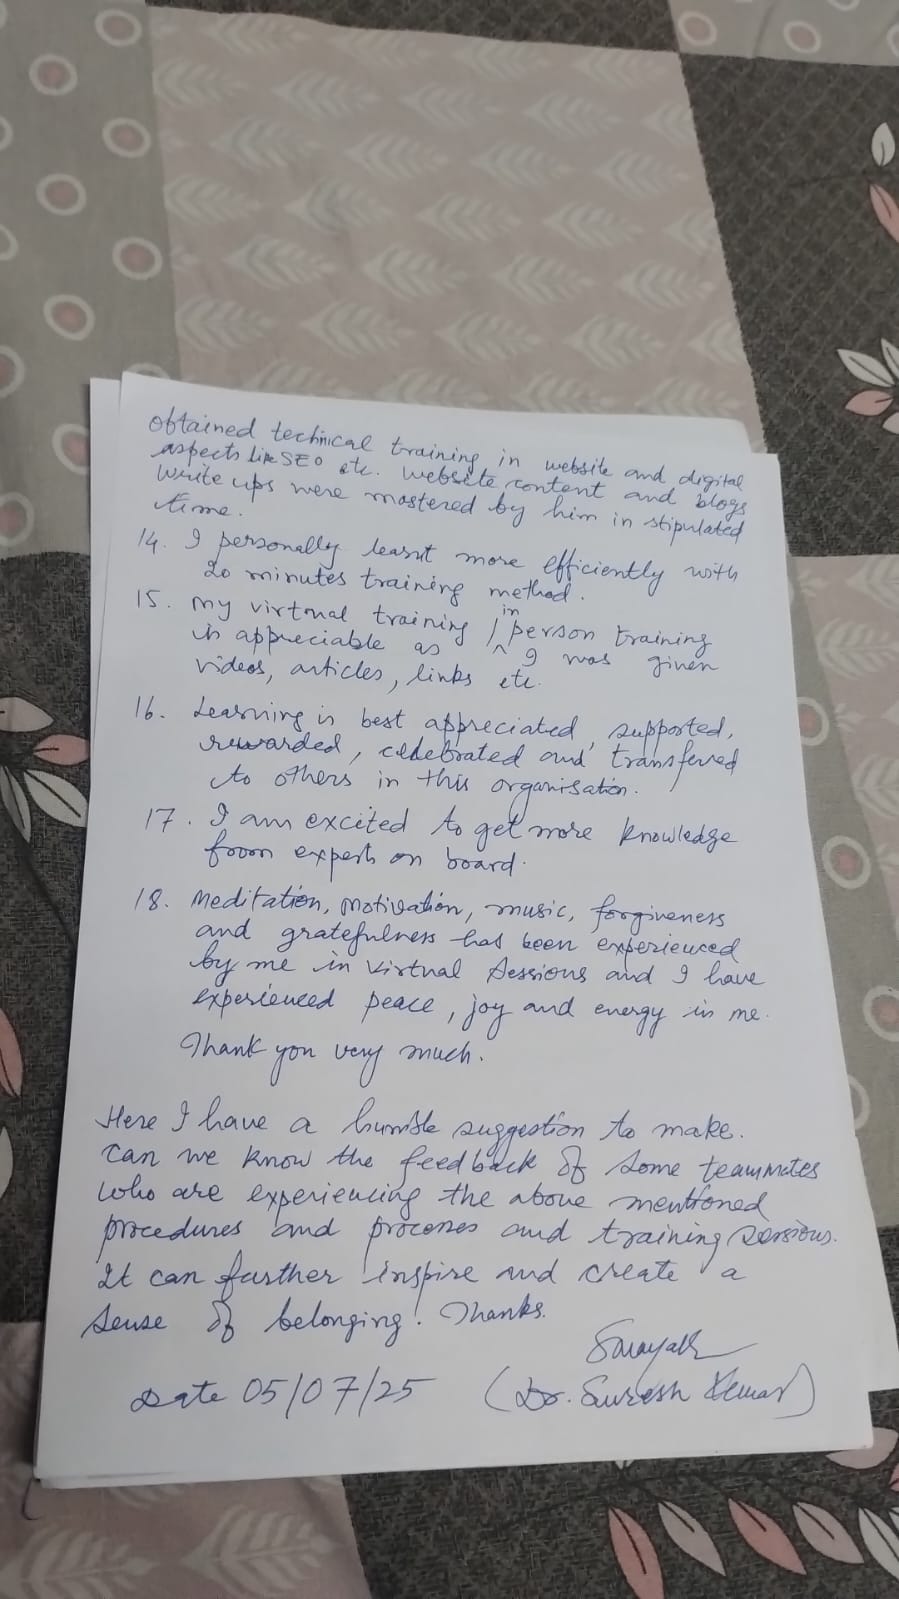 obtained technical training in website and digital
aspects like SEO etc. Website content and blogs
write ups were mastered by him in stipulated
time.
14. I personally learnt more efficiently with
20 minutes training method.
15. My virtual training / in person training
is appreciable as I was given
videos, articles, links etc.
16. Learning is best appreciated, supported,
rewarded, celebrated and transferred
to others in this organisation.
17. I am excited to get more knowledge
from experts on board.
18. Meditation, motivation, music, forgiveness
and gratefulness has been experienced
by me in virtual sessions and I have
experienced peace, joy and energy in me.
Thank you very much.
Here I have a humble suggestion to make.
Can we know the feedback of some teammates
who are experiencing the above mentioned
procedures and processes and training sessions.
It can further inspire and create a
sense of belonging! Thanks.
Date 05/07/25 (Dr. Suresh Kumar)